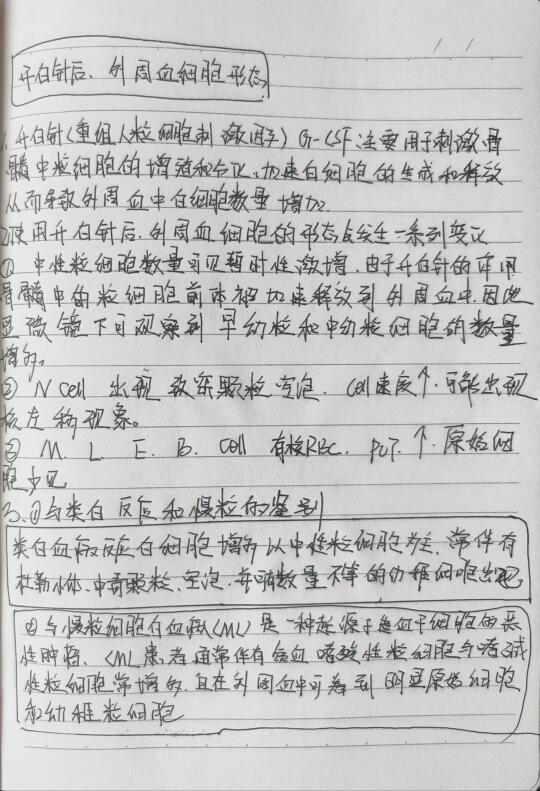 升白针后、外周血细胞形态
1、升白针(重组人粒细胞刺激因子)G-CSF主要用于刺激骨
髓中粒细胞的增殖和分化、加速白细胞的生成和释放
从而导致外周血中白细胞数量增加.
2.使用升白针后.外周血细胞的形态会发生一系列变化
① 中性粒细胞数量可见暂时性激增.由于升白针的作用
骨髓中的粒细胞前体被加速释放到外周血中.因此
显微镜下可观察到早幼粒和中幼粒细胞的数量
增多。
② N cell 出现 致密颗粒 空泡. cell速度↑.可能出现
核左移现象。
③ M. L. E. B. cell 有核RBC. PLT.↑.原始细
胞少见
3、①与类白反应和慢粒的鉴别
类白血病反应白细胞增多以中性粒细胞为主、常伴有
杜勒小体、中毒颗粒、空泡.并可有数量不等的幼稚细胞出现
② 与慢粒细胞白血病(CML)是一种起源于造血干细胞的恶
性肿瘤、CML患者通常伴有贫血 嗜酸性粒细胞与嗜碱
性粒细胞常增多.且在外周血中可看到明显原始细胞
和幼稚粒细胞